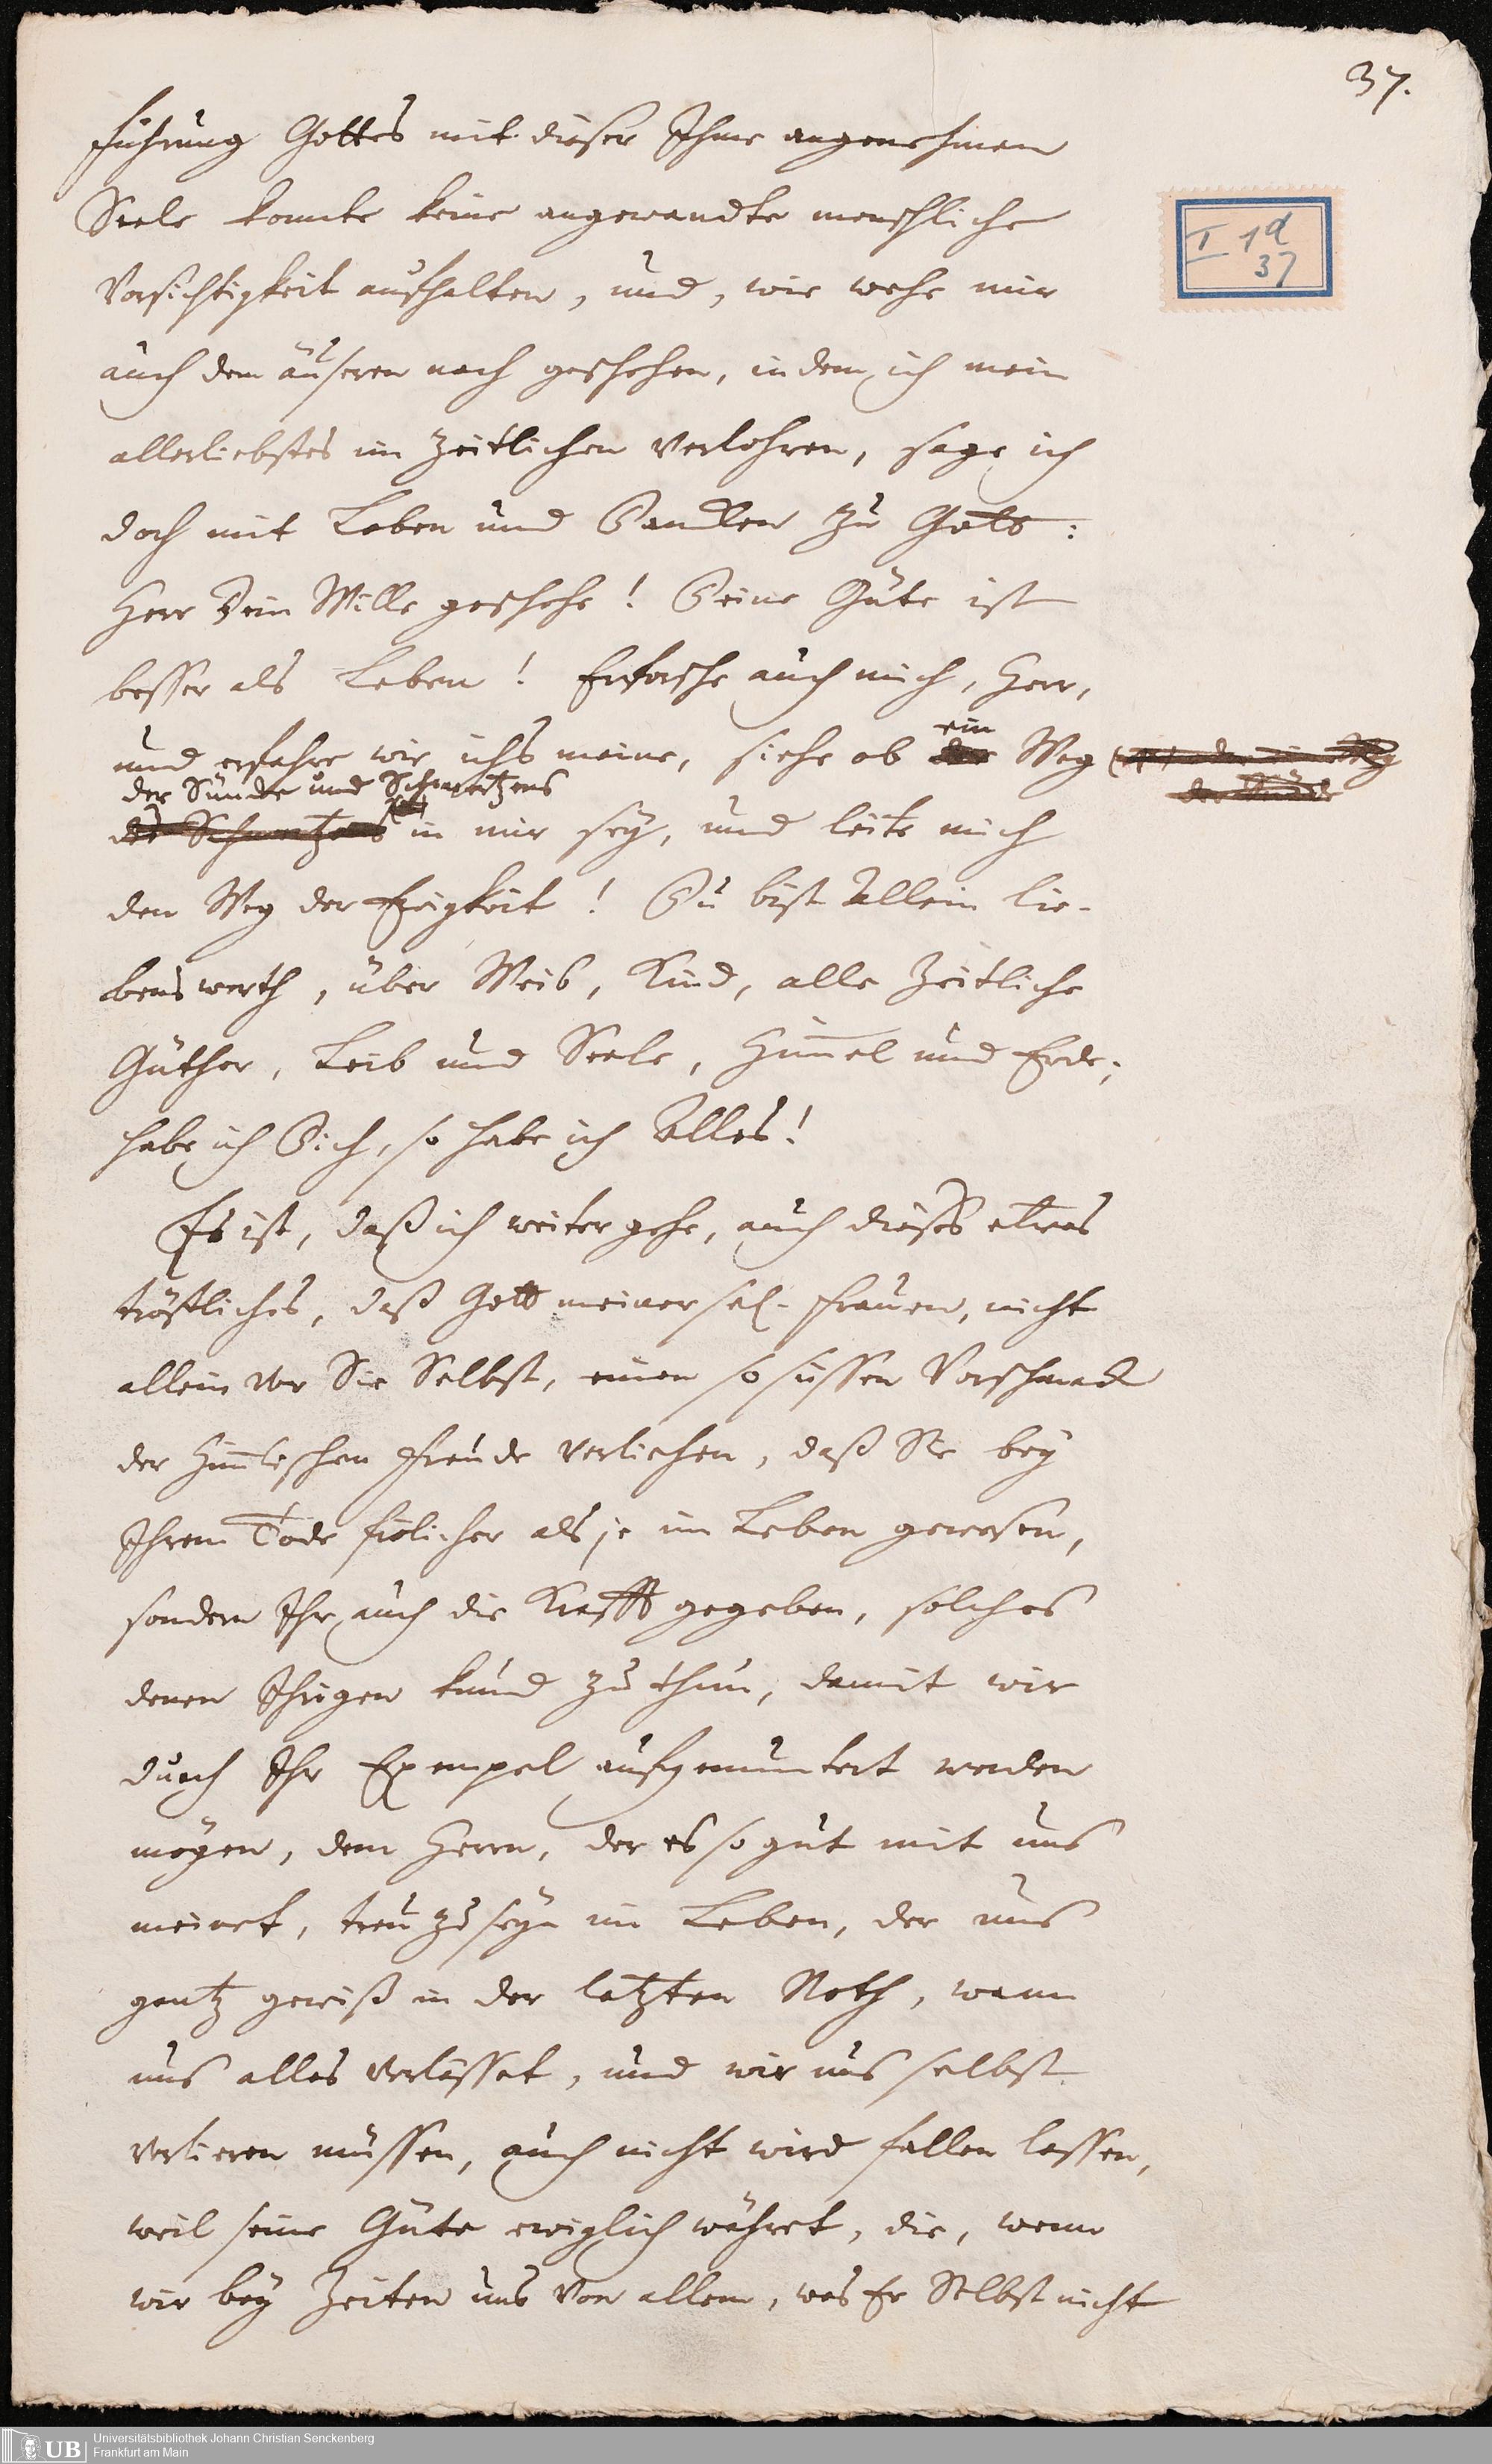 37.
Führung Gottes mit dieser Ihme angenehmen
Seele konnte keine angewandte menschliche
Vorsichtigkeit aufhalten, und, wie wehe mir
auch dem äuseren nach geschehen, indem ich mein
allerliebstes im Zeitlichen verlohren, sage ich
doch mit Loben und Dancken zu Gott:
Herr Dein Wille geschehe! Deine Güte ist
besser als Leben! Erforsche auch mich, Herr,
und erfahre wie ichs meine, siehe ob ein Weg
der Sünde und Schmertzens
des Schmertzens in mir sey, und leite mich
den Weg der Ewigkeit! Du bist Allein lie-
bens werth, über Weib, Kind, alle Zeitliche
Güther, Leib und Seele, Himel und Erde;
habe ich Dich, so habe ich Alles!
Es ist, daß ich weiter gehe, auch dieses etwas
tröstliches, daß Gott meiner sel. Frauen, nicht
allein vor Sie Selbst, einen so süssen Vorschmack
der Himlischen Freude verliehen, daß Sie bey
Ihrem Tode frölicher als je im Leben gewesen,
sondern Ihr auch die Krafft gegeben, solches
denen Ihrigen kund zu thun, damit wir
durch Ihr Exempel aufgemuntert werden
mögen, dem Herrn, der es so gut mit uns
meinet, treu zu seyn im Leben, der uns
gantz gewiß in der letzten Noth, wann
uns alles verlässet, und wir uns selbst
verlieren müssen, auch nicht wird fallen lassen,
weil seine Güte ewiglich währet, die, wenn
wir bey Zeiten uns von allem, was Er Selbst nicht
I 1d
37
UB
Universitätsbibliothek Johann Christian Senckenberg
Frankfurt am Main